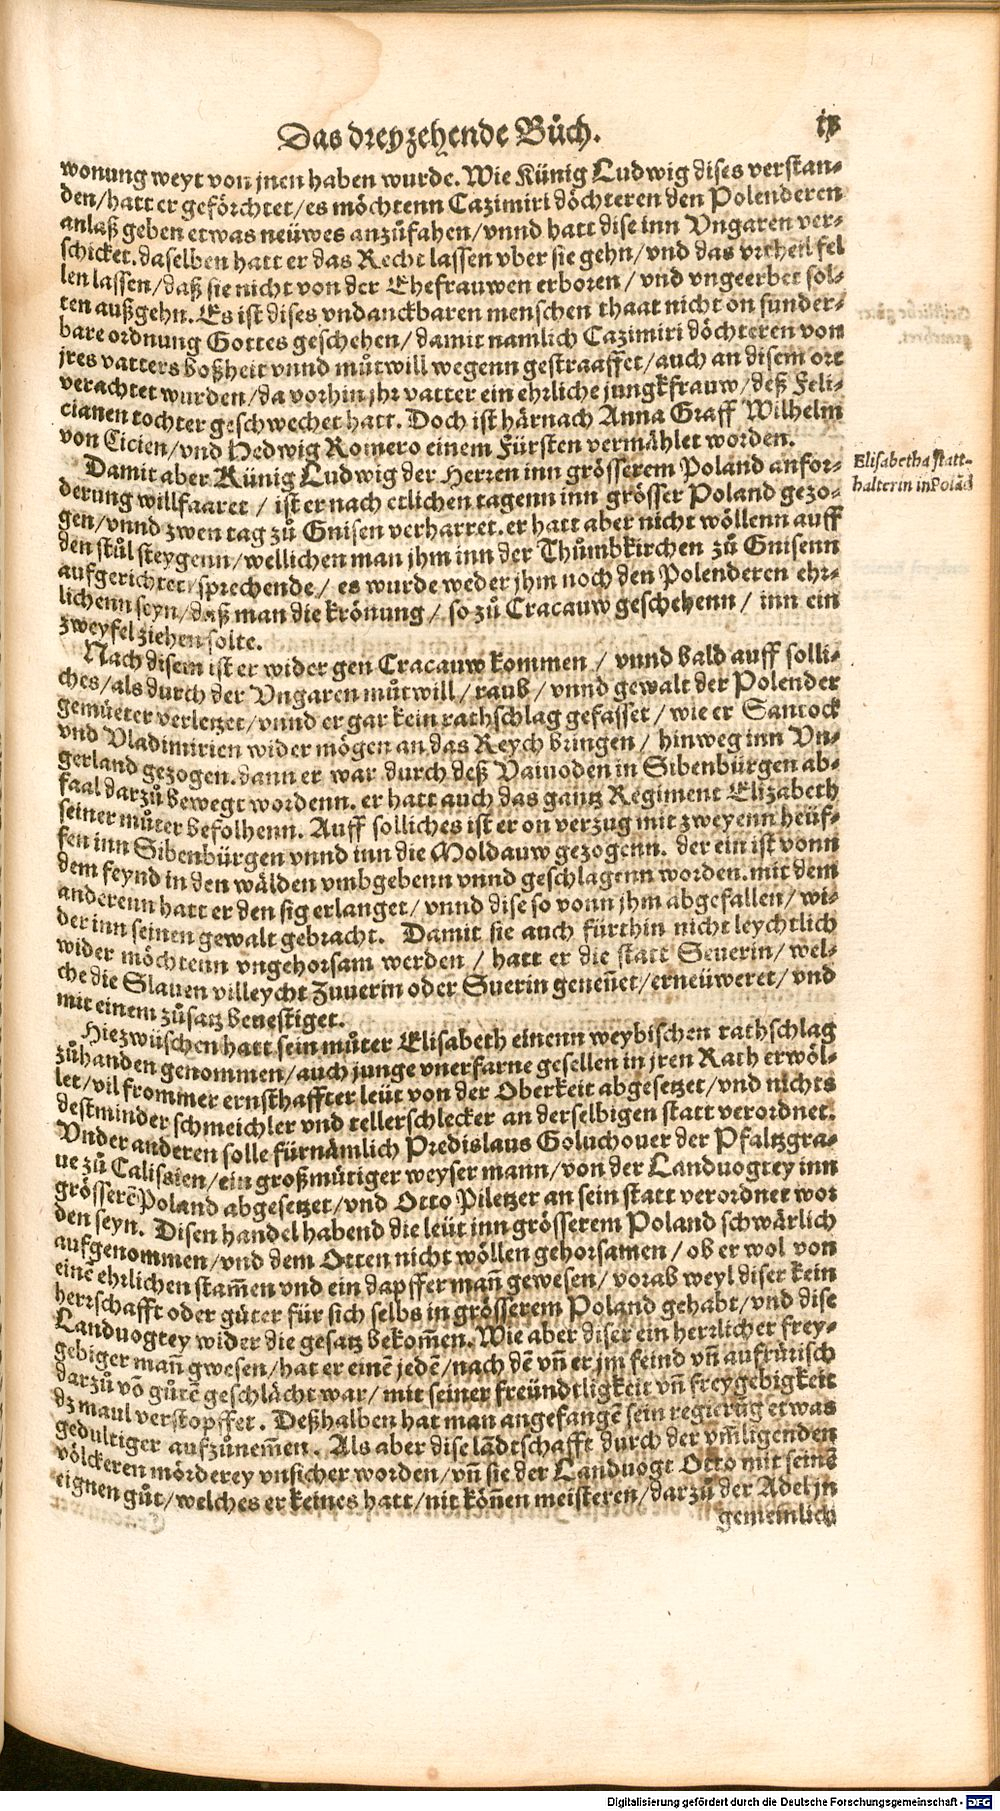 Das dreyzehende Bůch.
wonung weyt von jnen haben wurde. Wie Künig Ludwig dises verstan-
den/hatt er geförchtet/es möchtenn Cazimiri döchteren den Polenderen
anlaß geben etwas neüwes anzůfahen/vnnd hatt dise inn Vngaren ver-
schicket. daselben hatt er das Recht lassen vber sie gehn/vnd das vrtheil fel
len lassen/daß sie nicht von der Ehefrauwen erboren/vnd vngeerbet sol-
ten außgehn. Es ist dises vndanckbaren menschen thaat nicht on sunder-
bare ordnung Gottes geschehen/damit namlich Cazimiri döchteren von
jres vatters boßheit vnnd můtwill wegenn gestraaffet/auch an disem ort
verachtet wurden/da vorhin jhr vatter ein ehrliche jungkfrauw/deß Feli-
cianen tochter geschwechet hatt. Doch ist härnach Anna Graff Wilhelm
von Cicien/vnd Hedwig Romero einem Fürsten vermählet worden.
Damit aber Künig Ludwig der Herren inn grösserem Poland anfor-
derung willfaaret / ist er nach etlichen tagenn inn grösser Poland gezo-
gen/vnnd zwen tag zů Gnisen verharret. er hatt aber nicht wöllenn auff
den stůl steygenn/wellichen man jhm inn der Thůmbkirchen zů Gnisenn
aufgerichtet/sprechende/ es wurde weder jhm noch den Polenderen ehr-
lichenn seyn/daß man die krönung/ so zů Cracauw geschehenn/ inn ein
zweyfel ziehen solte.
Nach disem ist er wider gen Cracauw kommen / vnnd bald auff solli-
ches/als durch der Vngaren můtwill/raub/vnnd gewalt der Polender
gemüeter verletzet/vnnd er gar kein rathschlag gefasset/wie er Santock
vnd Vladimirien wider mögen an das Reych bringen/ hinweg inn Vn-
gerland gezogen. dann er war durch deß Vaiuoden in Sibenbürgen ab-
faal darzů bewegt wordenn. er hatt auch das gantz Regiment Elizabeth
seiner můter befolhenn. Auff solliches ist er on verzug mit zweyenn heüf-
fen inn Sibenbürgen vnnd inn die Moldauw gezogenn. der ein ist vonn
dem feynd in den wälden vmbgebenn vnnd geschlagenn worden. mit dem
anderenn hatt er den sig erlanget/vnnd dise so vonn jhm abgefallen/wi-
der inn seinen gewalt gebracht. Damit sie auch fürthin nicht leychtlich
wider möchtenn vngehorsam werden / hatt er die statt Seuerin/wel-
che die Slauen villeycht Zuuerin oder Suerin geneñet/erneüweret/vnd
mit einem zůsatz beuestiget.
Hiezwüschen hatt sein můter Elisabeth einenn weybischen rathschlag
zůhanden genommen/auch junge vnerfarne gesellen in jren Rath erwöl-
let/vil frommer ernsthaffter leüt von der Oberkeit abgesetzet/vnd nichts
destminder schmeichler vnd tellerschlecker an derselbigen statt verordnet.
Vnder anderen solle fürnämlich Predislaus Goluchouer der Pfaltzgra-
ue zů Calissien/ein großmůtiger weyser mann/von der Landuogtey inn
grösserẽ Poland abgesetzet/vnd Otto Piletzer an sein statt verordnet wor
den seyn. Disen handel habend die leüt inn grösserem Poland schwärlich
aufgenommen/vnd dem Otten nicht wöllen gehorsamen/ob er wol von
einẽ ehrlichen stam̃en vnd ein dapffer mañ gewesen/vorab weyl diser kein
herrschafft oder gůter für sich selbs in grösserem Poland gehabt/vnd dise
Landuogtey wider die gesatz bekom̃en. Wie aber diser ein herrlicher frey-
gebiger mañ gwesen/hat er einẽ jedẽ/nach dẽ vñ er jm feind vñ aufrürisch
darzů võ gůtẽ geschlächt war/mit seiner freündtligkeit vñ freygebigkeit
dz maul verstopffet. Deßhalben hat man angefangẽ sein regierũg etwas
gedultiger aufzůnem̃en. Als aber dise lãdtschafft durch der vm̃ligenden
völckeren mörderey vnsicher worden/vñ sie der Landuogt Otto mit seinẽ
eignen gůt/welches er keines hatt/nit köñen meisteren/darzů der Adel jn
gemeinlich
Elisabetha statt-
halterin in Polãd
Digitalisierung gefördert durch die Deutsche Forschungsgemeinschaft - DFG